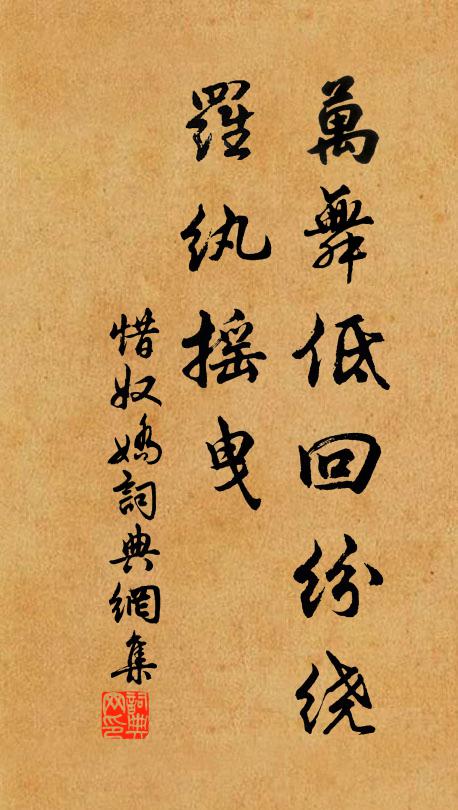 萬舞低回紛绕
羅紈摇曳
惜奴嬌詞典網集
詞典网印